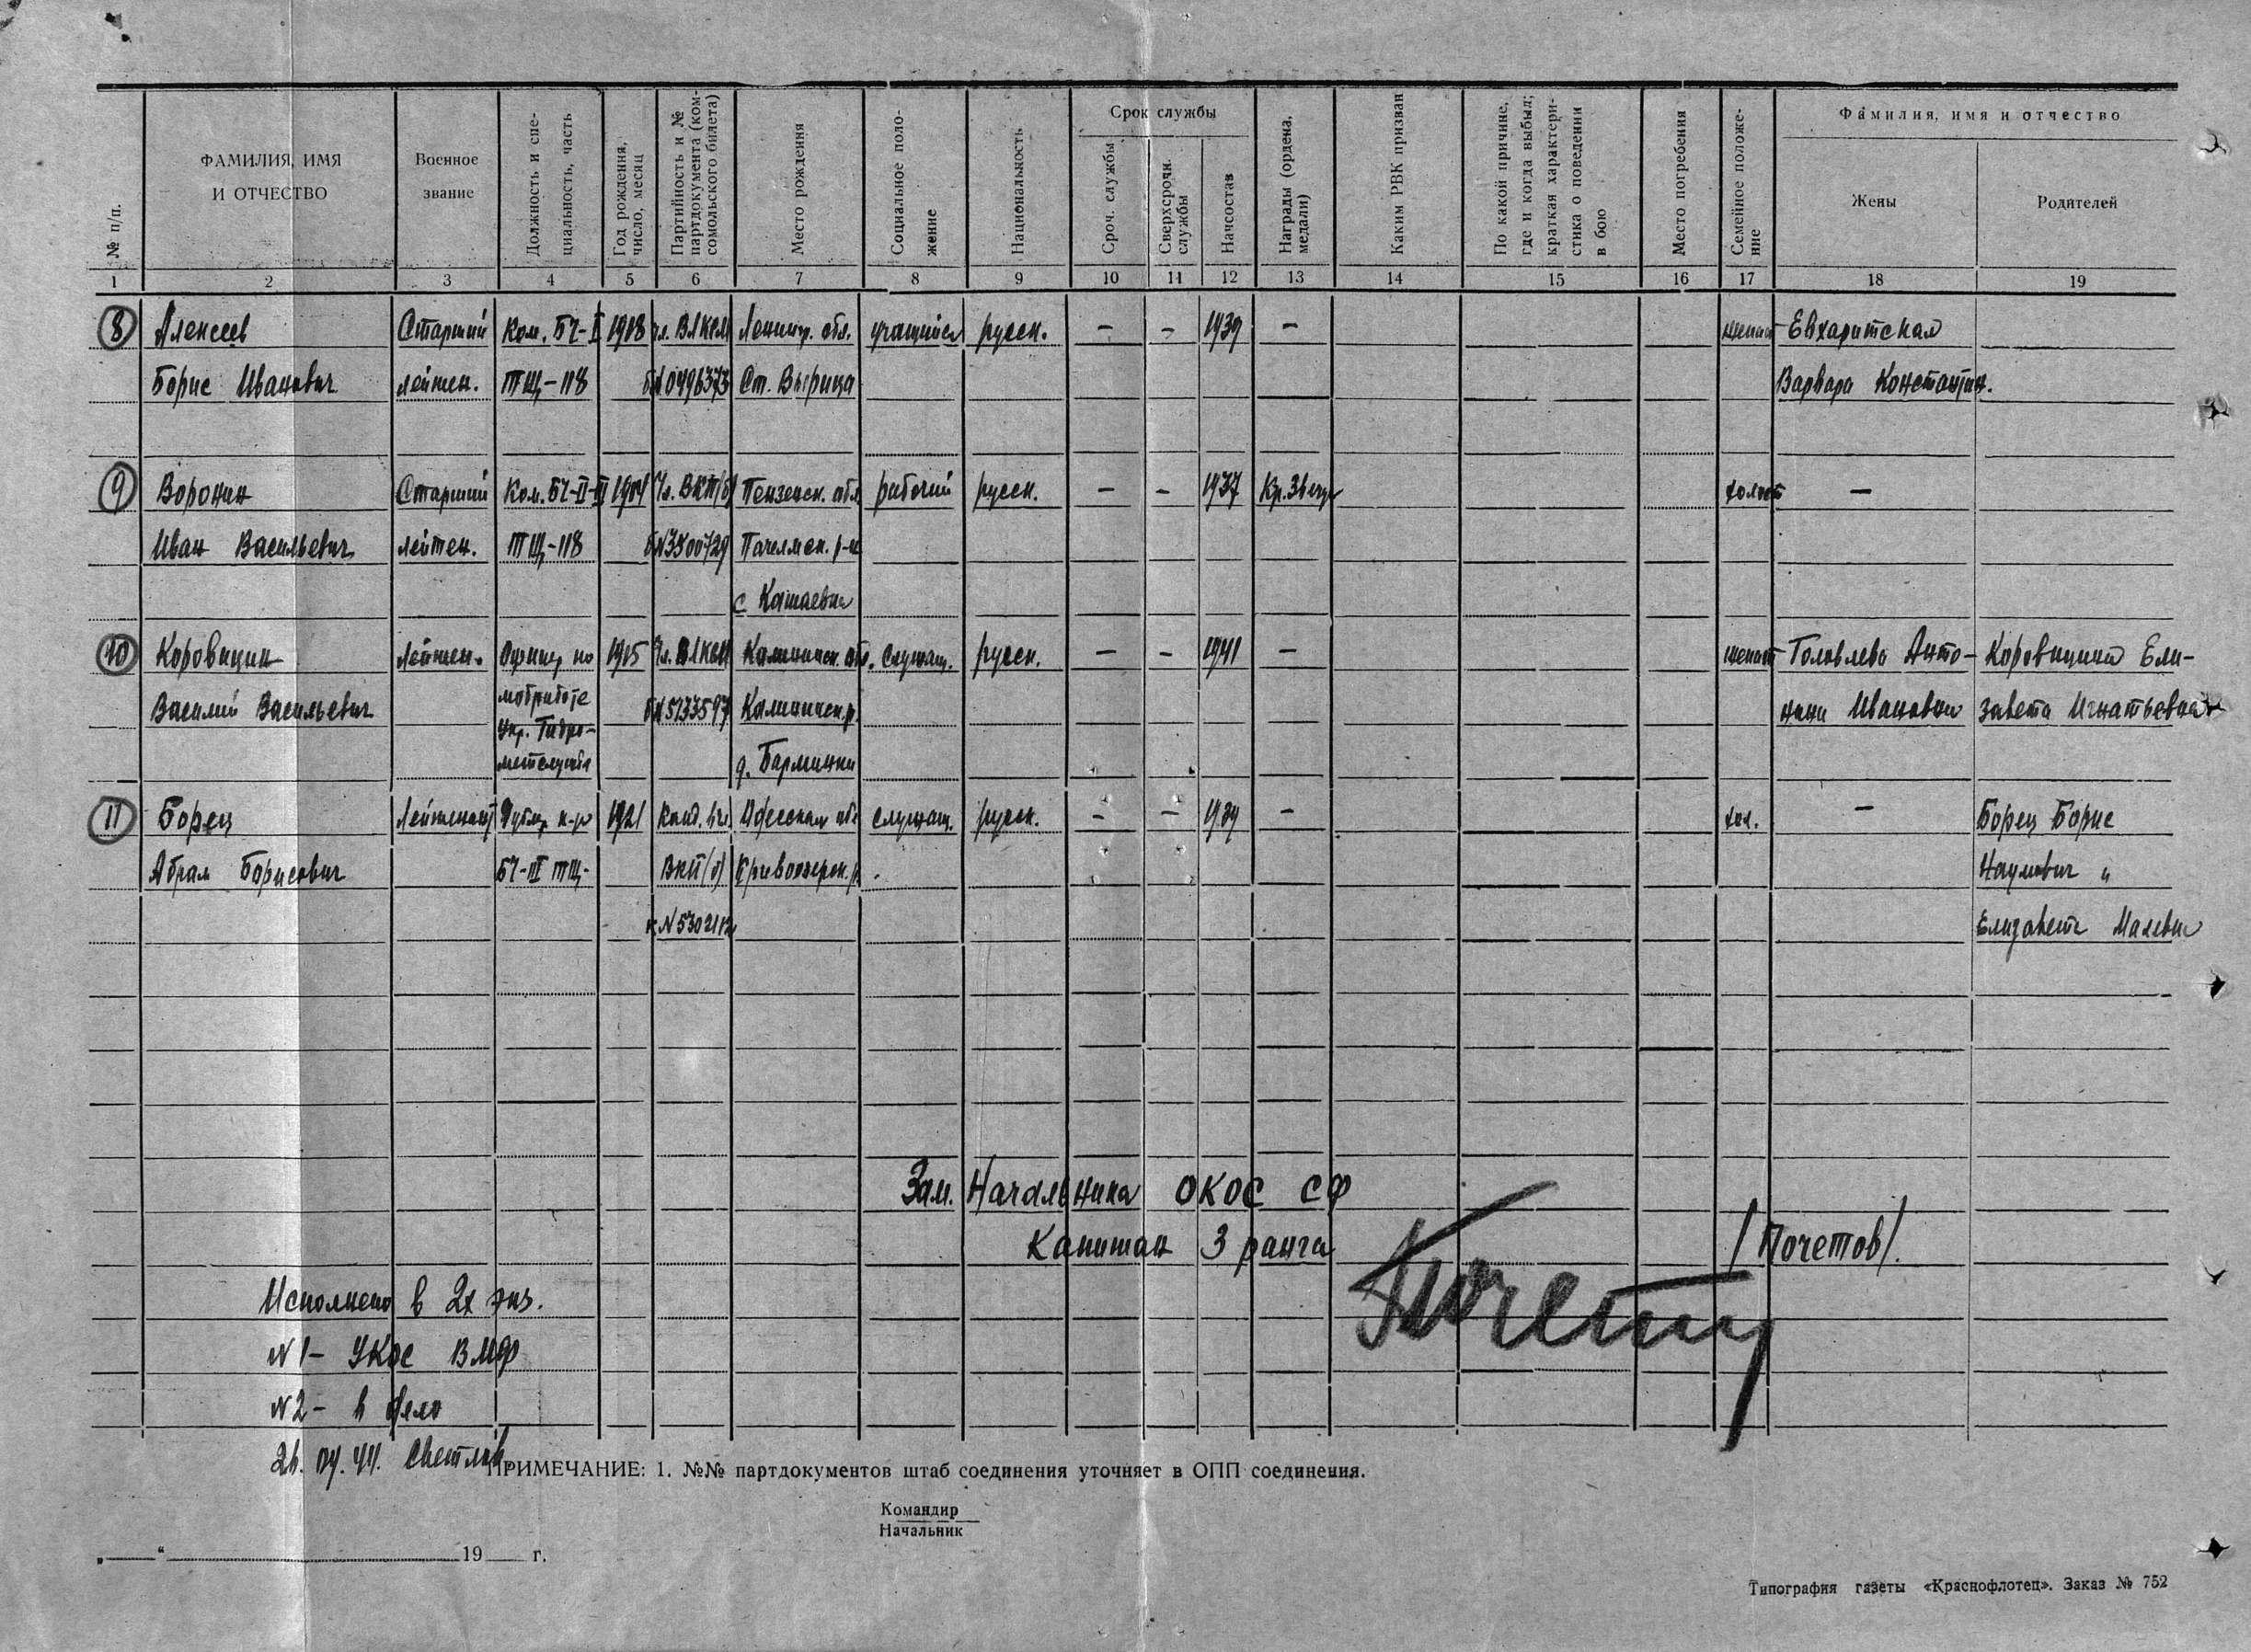 № п/п.
ФАМИЛИЯ, ИМЯ
И ОТЧЕСТВО
Военное
звание
Должность и спе-
циальность, часть
Год рождения,
число, месяц
Партийность и №
партдокумента (ком-
сомольского билета)
Место рождения
Социальное поло-
жение
Национальность
Срок службы
Сроч. службы
Сверхсрочн.
службы
Начсостав
Награды (ордена,
медали)
Каким РВК призван
По какой причине,
где и когда выбыл;
краткая характери-
стика о поведении
в бою
Место погребения
Семейное положе-
ние
Фамилия, имя и отчество
Жены
Родителей
1 2 3 4 5 6 7 8 9 10 11 12 13 14 15 16 17 18 19
8 Алексеев Старший Ком. БЧ-I 1918 чл. ВЛКСМ Ленингр. обл. учащийся русск. — — 1939 — женат Евхаритская
Борис Иванович лейтен. ТЩ-118 Ст. Вырица Варвара Константин.
9 Воронин Старший Ком. БЧ-II-III Чл. ВКП(б) Пензенск. обл. рабочий русск. — — 1937 Кр. Звезда холост —
Иван Васильевич лейтен. ТЩ-118 б№3500729 Пачелмск. р-н
с
10 Коровицин Лейтен. Офицер по 1915 Чл. ВЛКСМ Калининск. обл. служащ. русск. — — 1941 — женат Головлева Анто- Коровицина Ели-
Василий Васильевич мобработе Калининск. р. нина Ивановна завета Игнатьевна
Упр. Гидро-
метслужбы д.
11 Борец Лейтенант Дублер к-ра 1921 Канд. в чл. Одесская обл. служащ. русск. — — 1939 — хол. — Борец Борис
Абрам Борисович БЧ-III ТЩ- ВКП(б) Кривоозерск. р. Наумович "
к №5302112 Елизавета
Зам. Начальника ОКОС СФ
Капитан 3 ранга /Почетов/.
Исполнено в 2х экз.
N1- УКОС ВМФ
N2- в дело
26.04.44. Светлов
ПРИМЕЧАНИЕ: 1. №№ партдокументов штаб соединения уточняет в ОПП соединения.
Командир
Начальник
„ “ 19 г.
Типография газеты «Краснофлотец». Заказ № 752